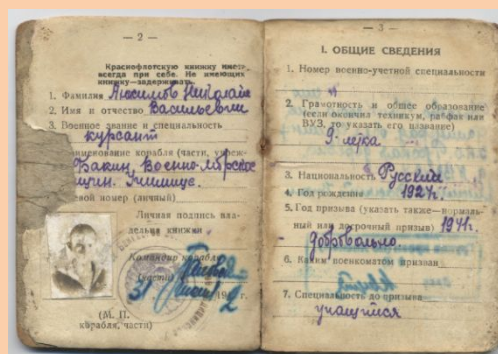 — 2 —
Краснофлотскую книжку иметь
всегда при себе. Не имеющих
книжку—задерживать.
1. Фамилия Анисимов Николай
2. Имя и отчество Васильевич
3. Военное звание и специальность
курсант
именование корабля (части, учреж-
Бакин. Военно-Морское
училище.
евой номер (личный)
Личная подпись вла-
дельца книжки
Командир корабля
(части)
31 194 2
(М. П.
корабля, части)
— 3 —
I. ОБЩИЕ СВЕДЕНИЯ
1. Номер военно-учетной специальности
2. Грамотность и общее образование
(если окончил техникум, рабфак или
ВУЗ, то указать его название)
9-летка
3. Национальность Русский
4. Год рождения 1924г.
5. Год призыва (указать также—нормаль-
ный или досрочный призыв) 1941г.
добровольно.
6. Каким военкоматом призван
7. Специальность до призыва
учащийся